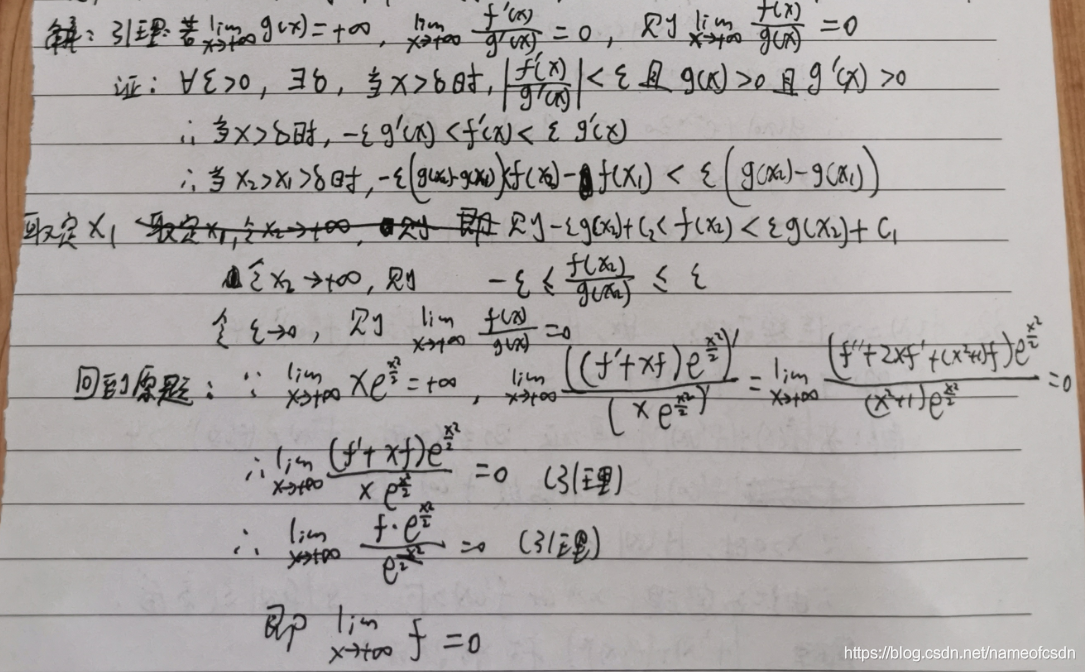 解：引理：若 lim_{x→+∞} g(x)=+∞, lim_{x→+∞} f'(x)/g'(x) = 0, 则 lim_{x→+∞} f(x)/g(x) = 0
证：∀ε>0, ∃δ, 当x>δ时, |f'(x)/g'(x)| < ε 且 g(x)>0 且 g'(x)>0
∴ 当x>δ时, -εg'(x) < f'(x) < ε g'(x)
∴ 当x₂>x₁>δ时, -ε(g(x₂)-g(x₁))<f(x₂)-f(x₁) < ε(g(x₂)-g(x₁))
取定x₁ 则 -εg(x₂)+C₂ < f(x₂) < εg(x₂)+C₁
令x₂→+∞, 则 -ε ≤ f(x₂)/g(x₂) ≤ ε
令ε→0, 则 lim_{x→+∞} f(x)/g(x) = 0
回到原题：∵ lim_{x→+∞} xe^{x²/2} = +∞, lim_{x→+∞} ((f'+xf)e^{x²/2})'/(xe^{x²/2})' = lim_{x→+∞} (f''+2xf'+(x²+1)f)e^{x²/2}/(x²+1)e^{x²/2} = 0
∴ lim_{x→+∞} (f'+xf)e^{x²/2}/xe^{x²/2} = 0 (引理)
∴ lim_{x→+∞} f·e^{x²/2}/e^{x²/2} = 0 (引理)
即 lim_{x→+∞} f = 0
https://blog.csdn.net/nameofcsdn